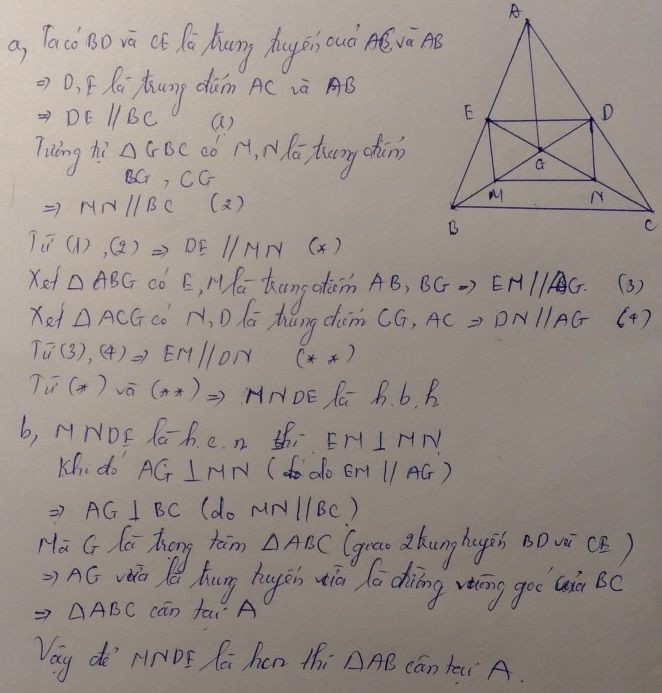 a, Ta có BD và CE là trung tuyến của AC và AB
⇒ D, E là trung điểm AC và AB
⇒ DE // BC (1)
Tương tự △ GBC có M, N là trung điểm
BG, CG
⇒ MN // BC (2)
Từ (1), (2) ⇒ DE // MN (*)
Xét △ ABG có E, M là trung điểm AB, BG ⇒ EM // AG. (3)
Xét △ ACG có N, D là trung điểm CG, AC ⇒ DN // AG (4)
Từ (3), (4) ⇒ EM // DN (**)
Từ (*) và (**) ⇒ MNDE là h.b.h
b, MNDE là h.c.n thì EM ⊥ MN
Khi đó AG ⊥ MN (do EM // AG)
⇒ AG ⊥ BC (do MN // BC)
Mà G là trọng tâm △ABC (giao 2 trung tuyến BD và CE)
⇒ AG vừa là trung tuyến vừa là đường vuông góc của BC
⇒ △ABC cân tại A
Vậy để MNDE là hcn thì △AB cân tại A.
A
E
D
G
M
N
B
C